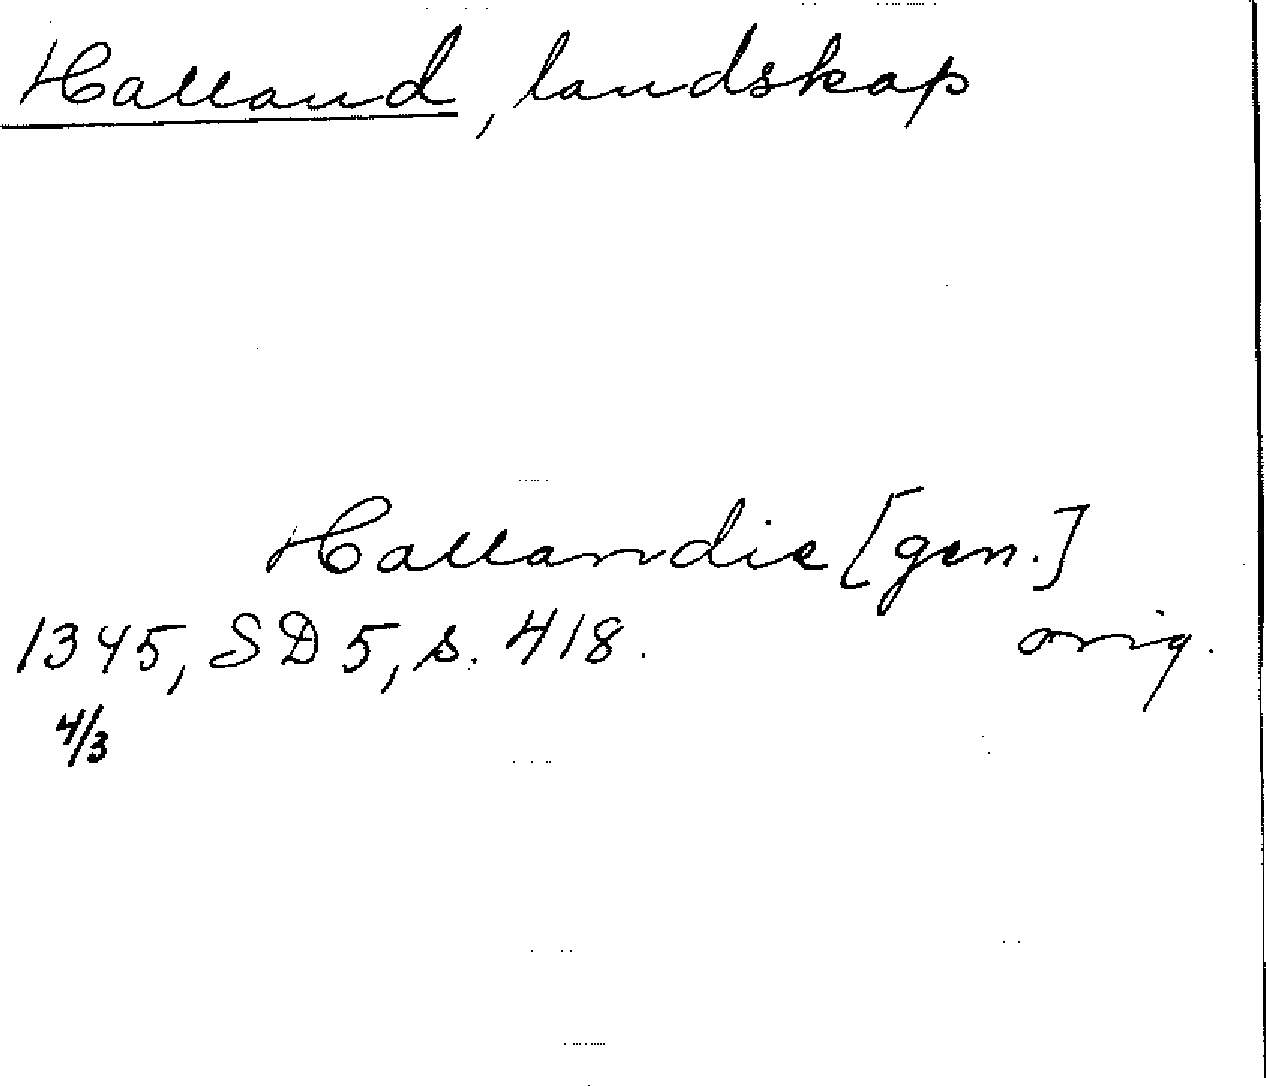 Halland, landskap
Hallandie [gen.]
1345, SD 5, s. 418. orig.
4/3